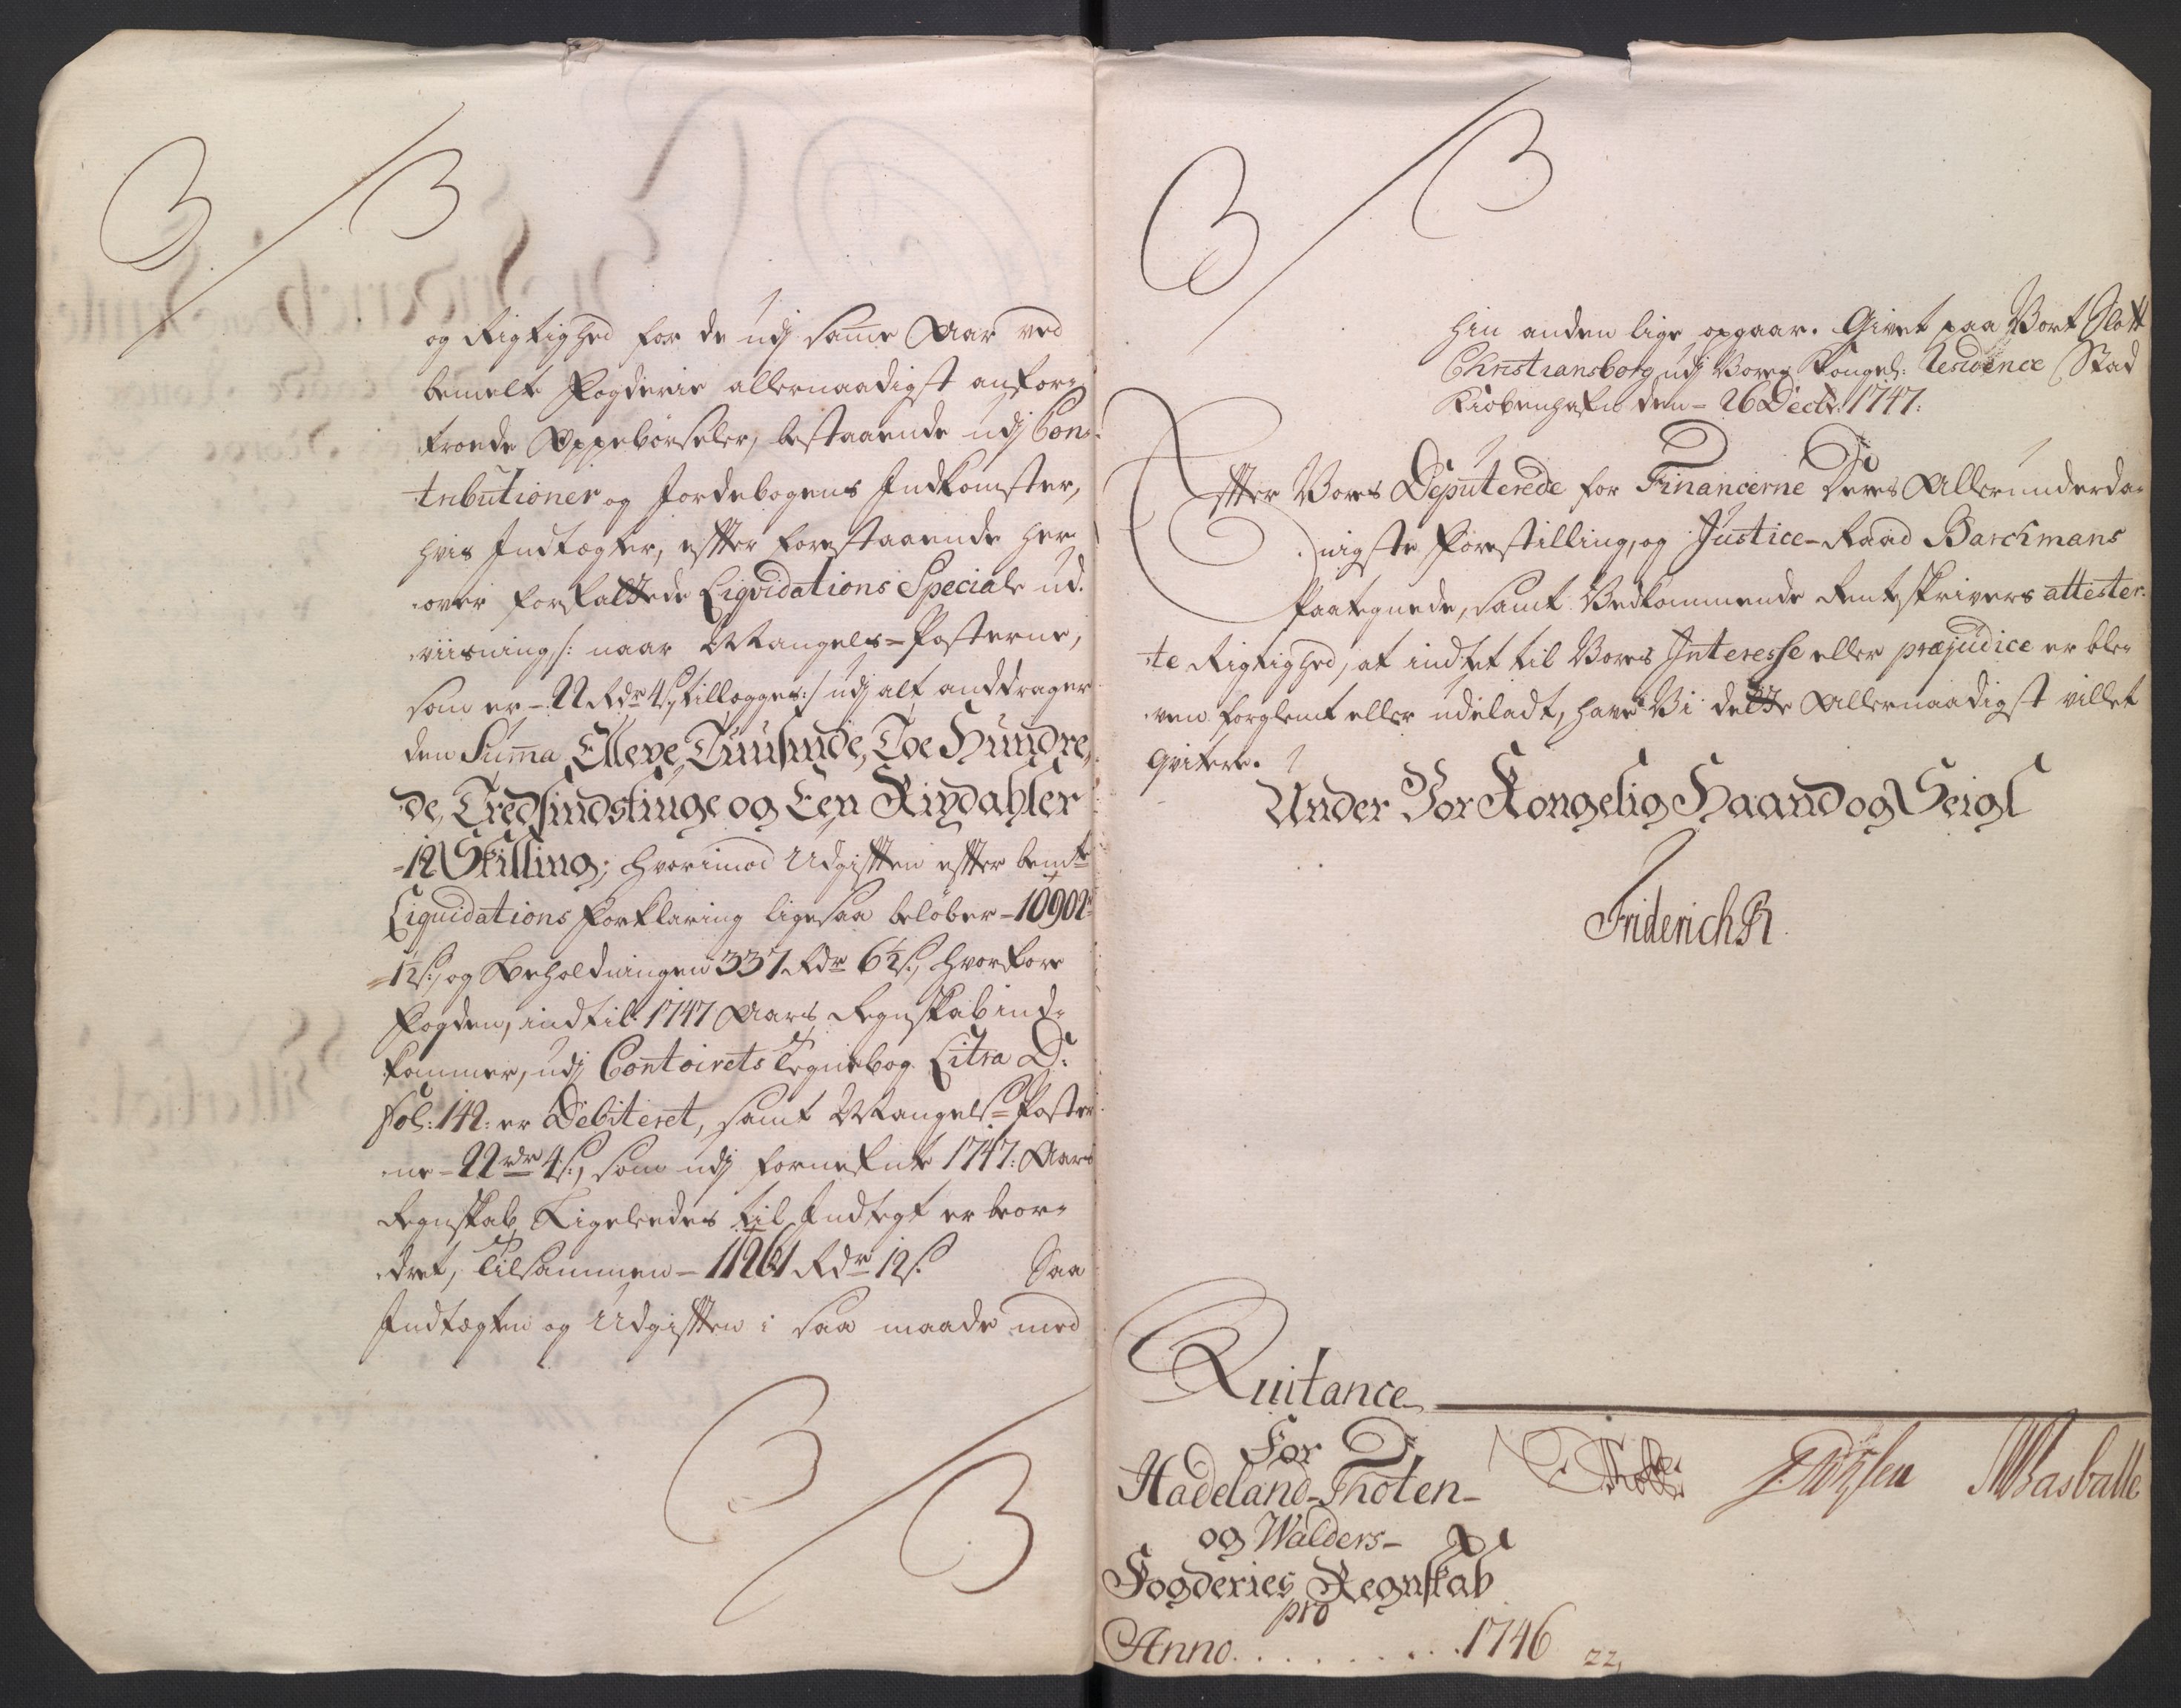 og Rigtighed for de udj samme Aar ved
bemelte Fogderie allernaadigst anfor-
troede Oppebørseler, bestaaende udj Con-
tributioner og Jordebogens Indkomster,
hvis Indtægter, effter forestaaende her-
over forfattede Liqvidations Speciale ud-
viisning /: naar Mangels-Posterne,
som er - 22 Rdr 4 s. tillægges :/ udj alt anddrager
den Suma Elleve Tuusinde, Toe Hundre-
de, Tredsindstiuge og Een Rixdahler
-12 Skilling; hvorimod Udgifften effter bemte
Liquidations Forklaring ligesaa beløber - 10902
1½ s., og Beholdningen 337 Rdr 6½ s., hvorfore
Fogden, indtil 1747 Aars Regnskab ind-
kommer, udj Contoirets Tegnebog Litra D:
Fol: 142: er Debiteret, samt Mangels-Poster-
ne - 22 rdr 4 s., som udj fornefnte 1747: Aars
Regnskab Ligeledes til Indtegt er beor-
dret, Tilsammen - 11261 Rdr 12 s. Saa
Indtægten og Udgifften i saa maade med
hin anden lige opgaar. Givet paa Vort Slott
Christiansborg udj Vores Kongel: Residence Stad
Kiøbenhafn den - 26 Decbr. 1747:
Effter Vores Deputerede for Financerne Deres Allerunderda-
nigste Forestilling, og Justice-Raad Barchmans
Paategnede, samt Vedkommende Rentskrivers attester-
te Rigtighed, at indtet til Vores Interesse eller præjudice er ble-
ven forglemt eller udeladt, have Vi dette Allernaadigst villet
qvitere.
Under Vor Kongelig Haand og Seigl
Friderich R
Quitance
For
Hadeland-Thoten-
og Walders-
Fogderies Regnskab
pro
Anno . . . . . . . . 1746
22,